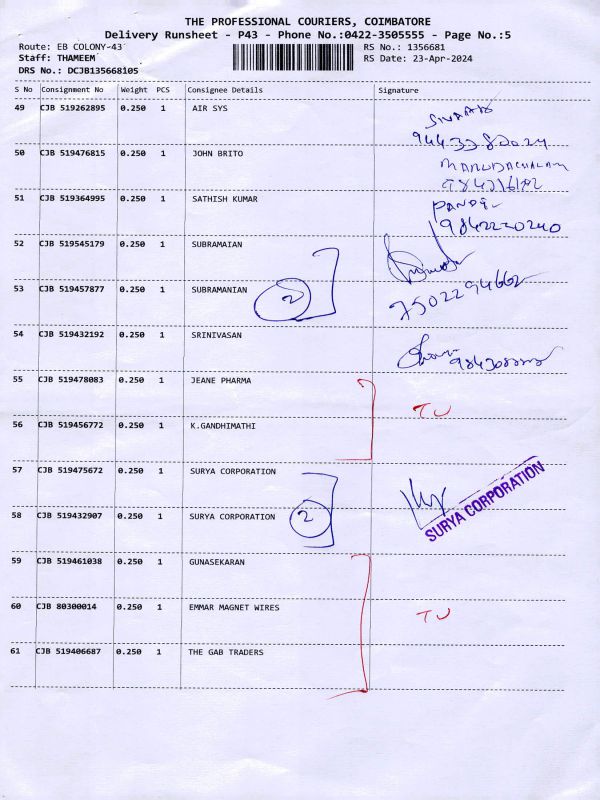 THE PROFESSIONAL COURIERS, COIMBATORE
Delivery Runsheet - P43 - Phone No.:0422-3505555 - Page No.:5
Route: EB COLONY-43 RS No.: 1356681
Staff: THAMEEM RS Date: 23-Apr-2024
DRS No.: DCJB135668105
S No Consignment No Weight PCS Consignee Details Signature
49 CJB 519262895 0.250 1 AIR SYS
50 CJB 519476815 0.250 1 JOHN BRITO
MARUDACHALAM
51 CJB 519364995 0.250 1 SATHISH KUMAR
9842220240
52 CJB 519545179 0.250 1 SUBRAMAIAN
53 CJB 519457877 0.250 1 SUBRAMANIAN 2
7502294662
54 CJB 519432192 0.250 1 SRINIVASAN
55 CJB 519478083 0.250 1 JEANE PHARMA
TU
56 CJB 519456772 0.250 1 K.GANDHIMATHI
57 CJB 519475672 0.250 1 SURYA CORPORATION
58 CJB 519432907 0.250 1 SURYA CORPORATION 2 SURYA CORPORATION
59 CJB 519461038 0.250 1 GUNASEKARAN
60 CJB 80300014 0.250 1 EMMAR MAGNET WIRES TU
61 CJB 519406687 0.250 1 THE GAB TRADERS